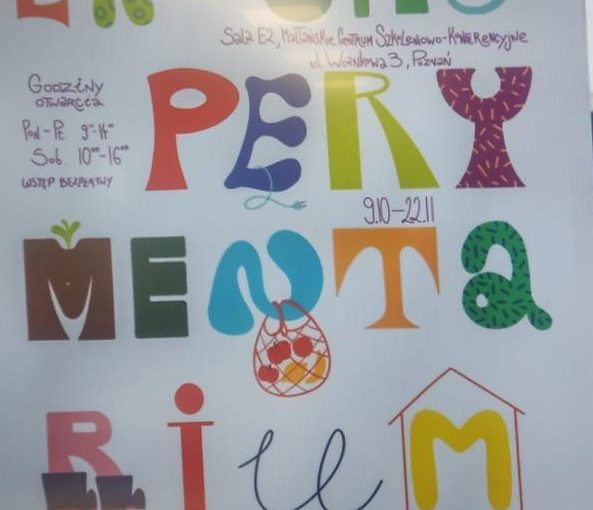 Sala E2, Maltańskie Centrum Szkoleniowo-Konferencyjne
ul Wiankowa 3, Poznań
Godziny
otwarcia
Pon-Pt 9⁰⁰-14⁰⁰
Sob. 10⁰⁰-16⁰⁰
WSTĘP BEZPŁATNY
PERY
9.10-22.11
MENTa
RiuM